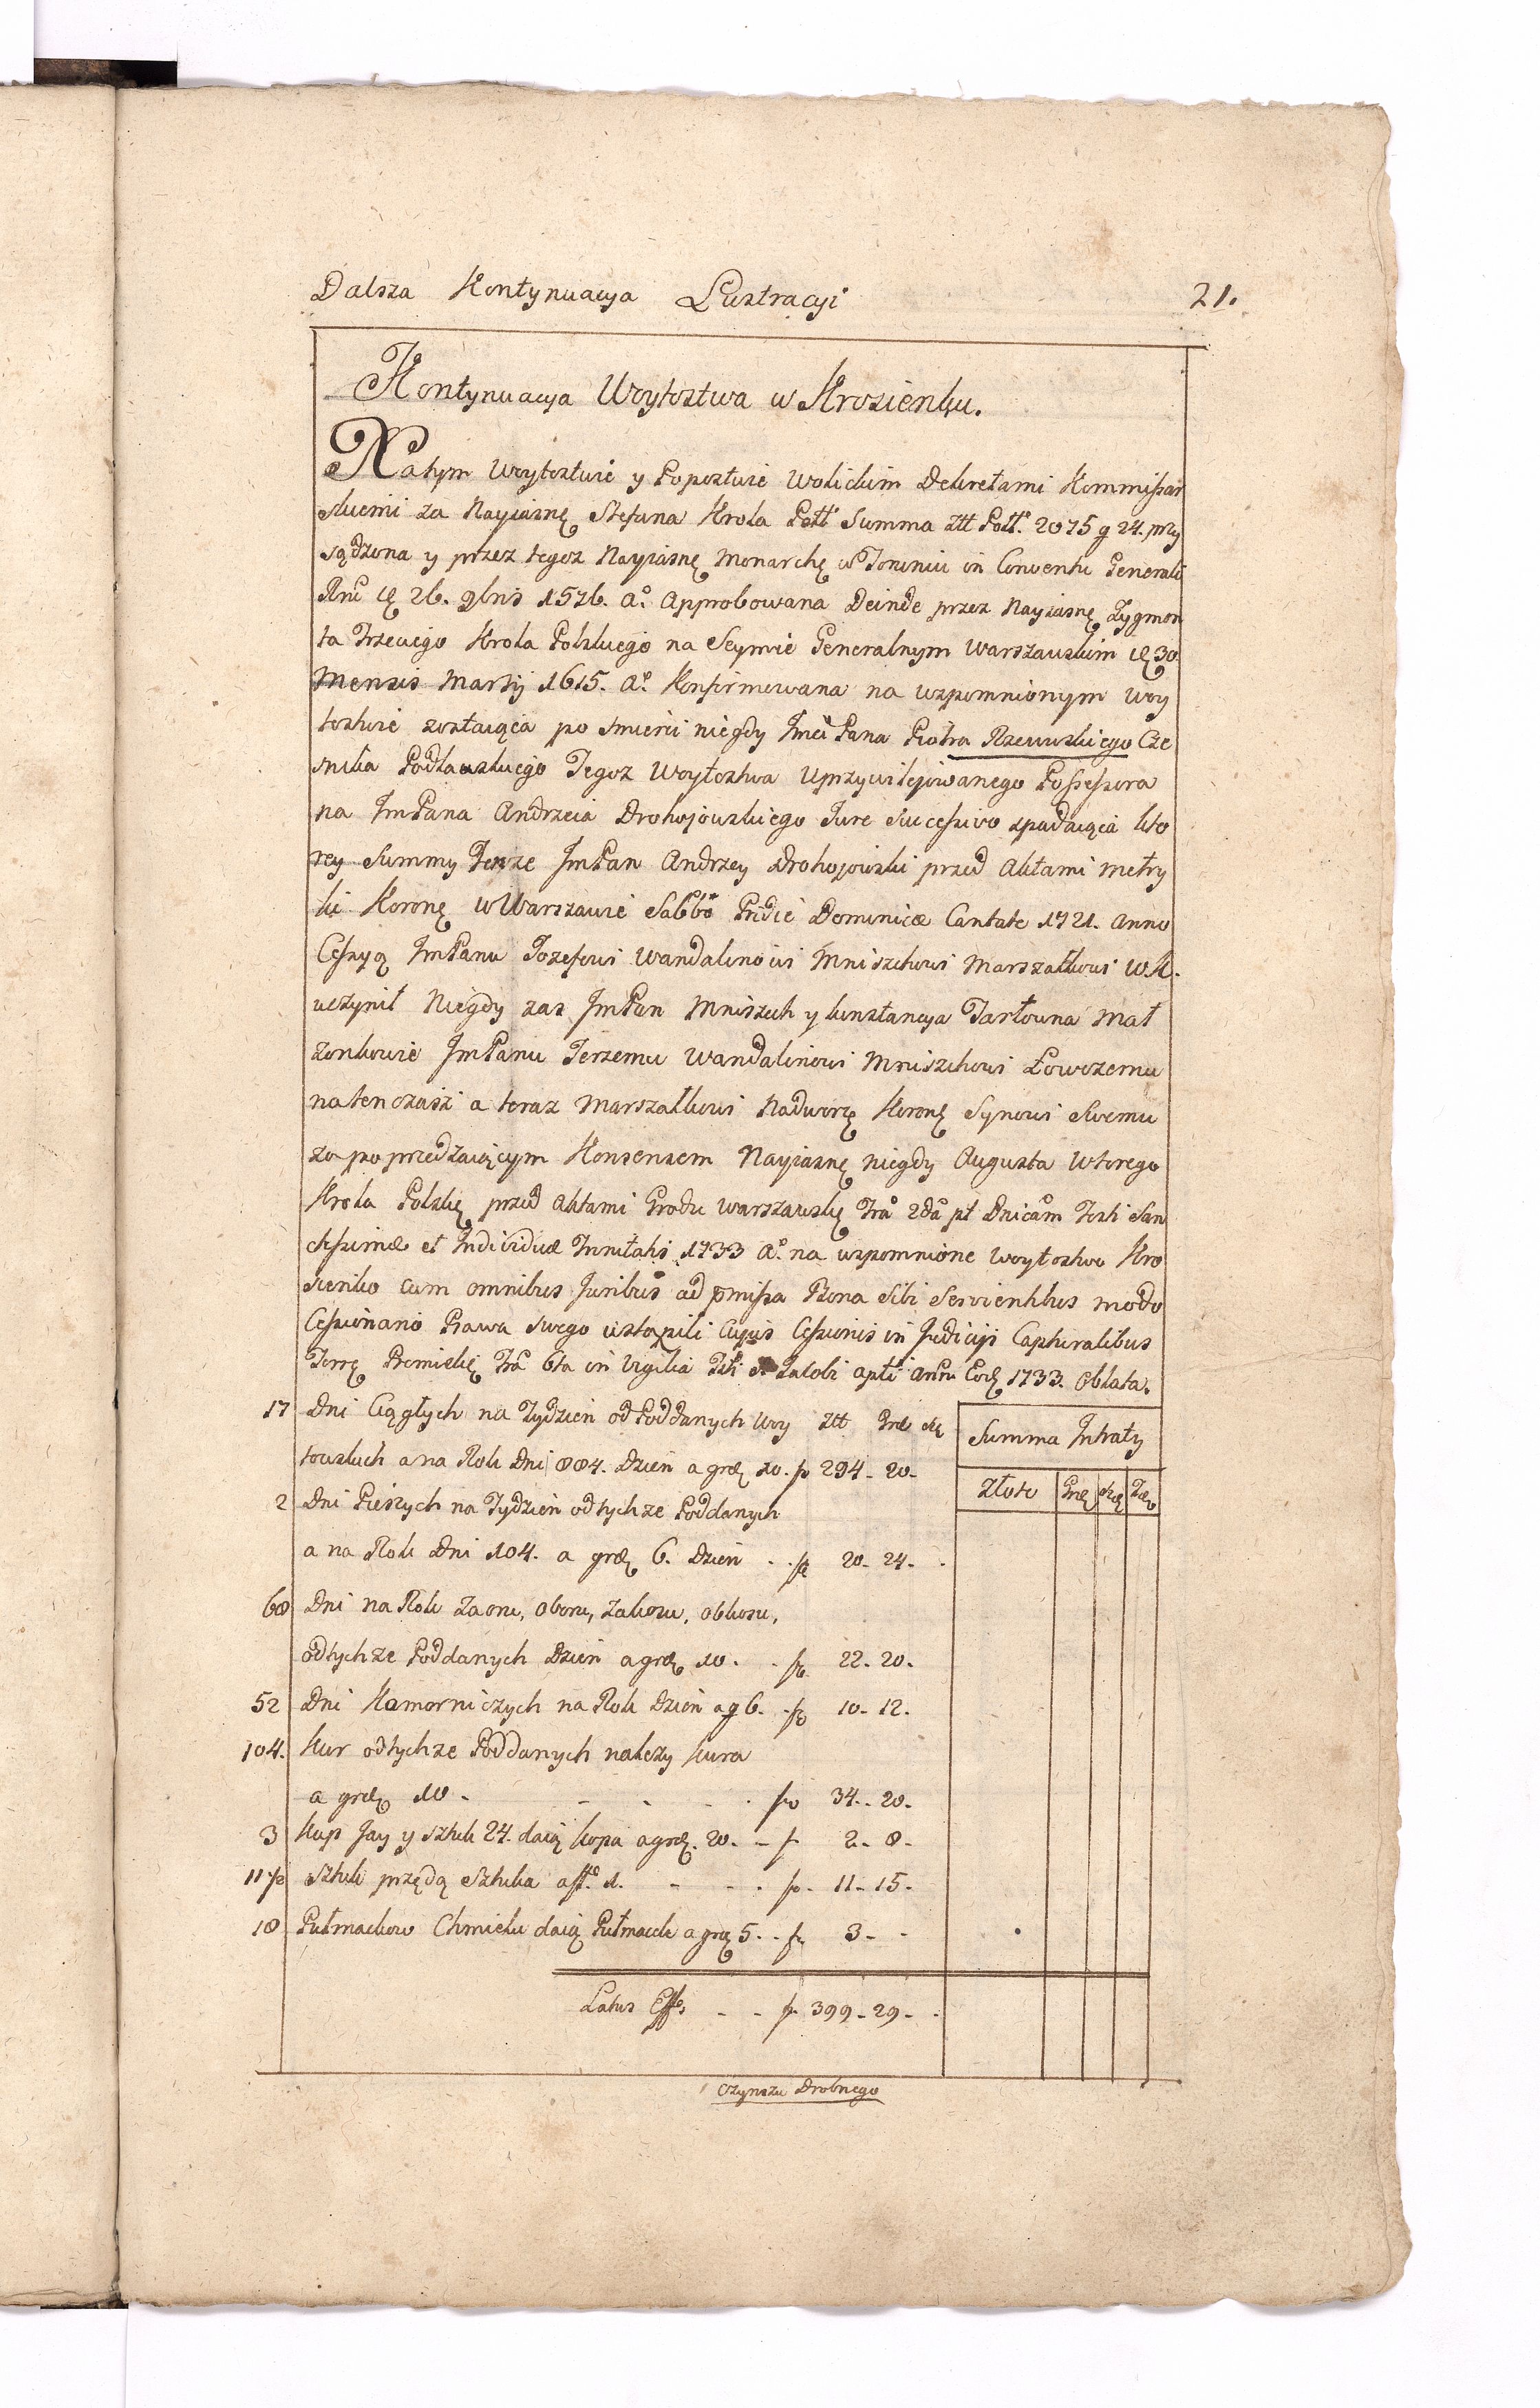 Dalsza Kontynuacya Lustracyi 21.
Kontynuacya Woytostwa w Krosienku.
Na tym Woytostwie y Popostwie Wolickim Dekretami Kommissar
skiemi za Nayiasnę Stefana Krola Poll Summa Ztt Poll. 2075 g 24. przy
sądzona y przez tegoz Nayiasnę Monarchę w Toruniu in Conventu Generali
26. 9bris 1576. Ao. Approbowana Deinde przez Nayiasnę Zygmon
ta Trzeciego Krola Polskiego na Seymie Generalnym Warszawskim 30
Mensis Martij 1615. Ao. Konfirmowana na wspomnionym Woy
tostwie zostaiąca po smierci niegdy Jmci Pana Piotra Rzewuskiego Cze
snika Podlaskiego Tegoz Woytostwa Uprzywilejowanego Possessora
na JmPana Andrzeia Drohojowskiego Jure Successivo spadaiąca kto
rey Summy Tenze JmPan Andrzey Drohojowski przed Aktami Metry
ki Koronę w Warszawie Sabbo Pridie Dominicæ Cantate 1721. Anno
Cessyą JmPanu Jozefowi Wandalinowi Mniszchowi Marszałkowi W.K.
uczynił Niegdy zas JmPan Mniszech y Konstancya Tarłowna Mał
zonkowie JmPanu Jerzemu Wandalinowi Mniszchowi Łowczemu
natenczas a teraz Marszałkowi Nadworę Koronę Synowi Swemu
za poprzedzaiącym Konsensem Nayiasnę niegdy Augusta Wtorego
Krola Polskię przed Aktami Grodu Warszawskię Fra 2da pt Dnicam Festi San
ctissimæ et Individuæ Trinitatis 1733 Ao. na wspomnione Woytostwo Kro
sienko cum omnibus Juribus ad pmissa Bona Sibi Servientibus modo
Cessionario Prawa Swego ustąpili Cujus Cessionis in Judicijs Capturalibus
Terrę Premislię Fra 6ta in Vigilia Fsti S. Jakobi Apli Anni Eod 1733. Oblata.
17 Dni Ciągłych na Tydzien od Poddanych Woy Ztt Gro
towskich a na Rok Dni 884. Dzien a gro 10. fp 294 - 20 -
Summa Intraty
Złote Gro
2 Dni Pieszych na Tydzien od tychze Poddanych
a na Rok Dni 104. a gro 6. Dzien . . fp 20 - 24 - .
68 Dni na Rok Zaoru, Oboru, Zakosu, Obkosu,
od tychze Poddanych Dzien a gro 10 . . fp 22 - 20 .
52 Dni Komorniczych na Rok Dzien a g 6. - fp 10 - 12 .
104. Kur od tychze Poddanych nalezy Kura
a gro 10 - - - . fp 34 - 20 -
3 Kop Jay y sztuk 24. daią Kopa a gro. 20. - f 2 - 8 -
11 1/2 Sztuk przędą Sztuka a ft. 1. - - . fp - 11 - 15 -
18 Pułmackow Chmielu daią Pułmacek a gro 5 . - fp 3 - -
Latus Eff - - fp 399 - 29 - .
Czynszu Drobnego